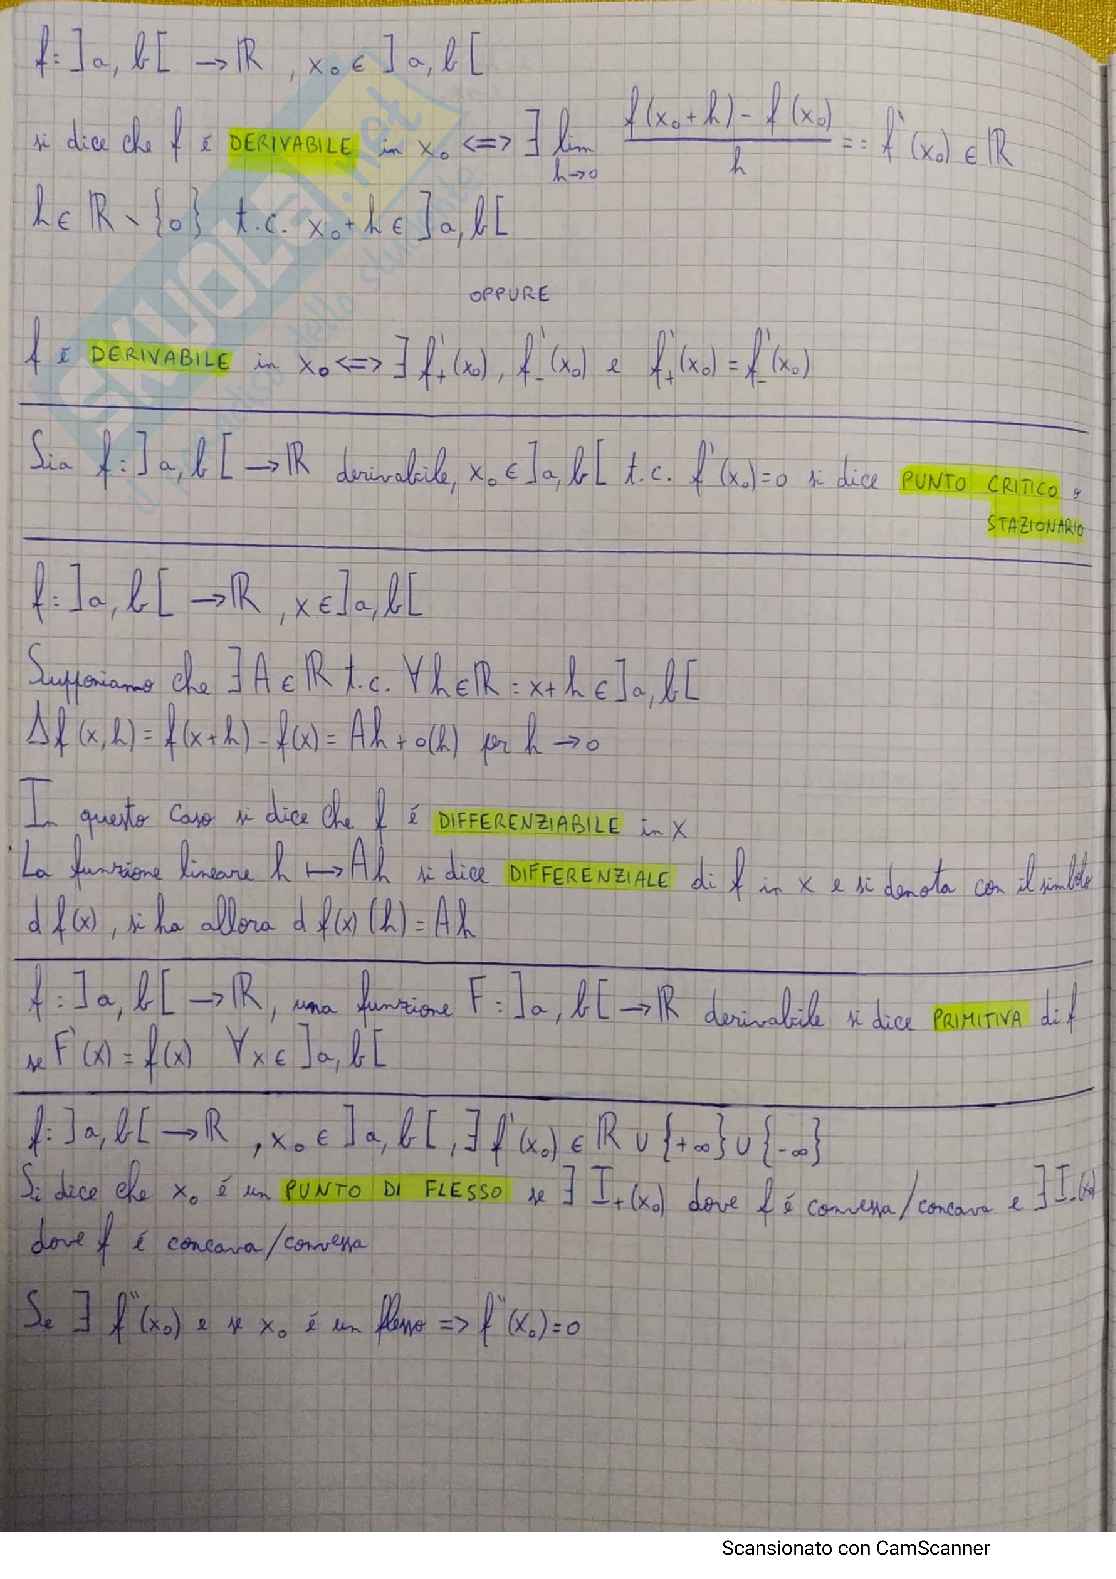 f: ]a, b[ → ℝ , x₀ ∈ ]a, b[
si dice che f é DERIVABILE in x₀ <=> ∃ lim h→0 f(x₀+h) - f(x₀) / h =: f'(x₀) ∈ ℝ
h ∈ ℝ \ {0} t.c. x₀+h ∈ ]a, b[
OPPURE
f é DERIVABILE in x₀ <=> ∃ f'₊(x₀), f'₋(x₀) e f'₊(x₀) = f'₋(x₀)
Sia f: ]a, b[ → ℝ derivabile, x₀ ∈ ]a, b[ t.c. f'(x₀)=0 si dice PUNTO CRITICO o
STAZIONARIO
f: ]a, b[ → ℝ , x ∈ ]a, b[
Supponiamo che ∃ A ∈ ℝ t.c. ∀h∈ℝ : x+h ∈ ]a, b[
Δf(x,h) = f(x+h) - f(x) = Ah + o(h) per h → 0
In questo caso si dice che f é DIFFERENZIABILE in x
La funzione lineare h ↦ Ah si dice DIFFERENZIALE di f in x e si denota con il simbolo
d f(x), si ha allora d f(x)(h) = Ah
f: ]a, b[ → ℝ, una funzione F: ]a, b[ → ℝ derivabile si dice PRIMITIVA di f
se F'(x) = f(x) ∀x ∈ ]a, b[
f: ]a, b[ → ℝ , x₀ ∈ ]a, b[ , ∃ f'(x₀) ∈ ℝ ∪ {+∞} ∪ {-∞}
Si dice che x₀ é un PUNTO DI FLESSO se ∃ I₊(x₀) dove f é convessa/concava e ∃ I₋(x₀)
dove f é concava/convessa
Se ∃ f''(x₀) e se x₀ é un flesso => f''(x₀)=0
SKUOLA.net
Scansionato con CamScanner